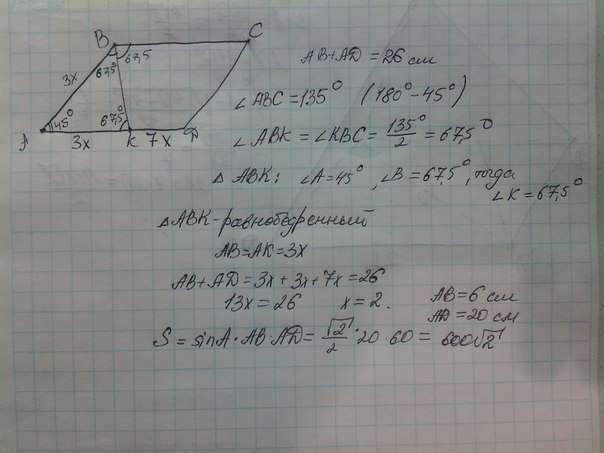 B
C
67,5
67,5
3x
45°
67,5°
A
3x
K
7x
D
AB+AD = 26 см
∠ABC = 135° (180° - 45°)
∠ABK = ∠KBC = 135°/2 = 67,5°
△ ABK: ∠A = 45°, ∠B = 67,5°, тогда
∠K = 67,5°
△ABK - равнобедренный
AB = AK = 3x
AB + AD = 3x + 3x + 7x = 26
13x = 26 x = 2.
AB = 6 см
AD = 20 см
S = sinA · AB · AD = √2/2 · 20 · 60 = 600√2